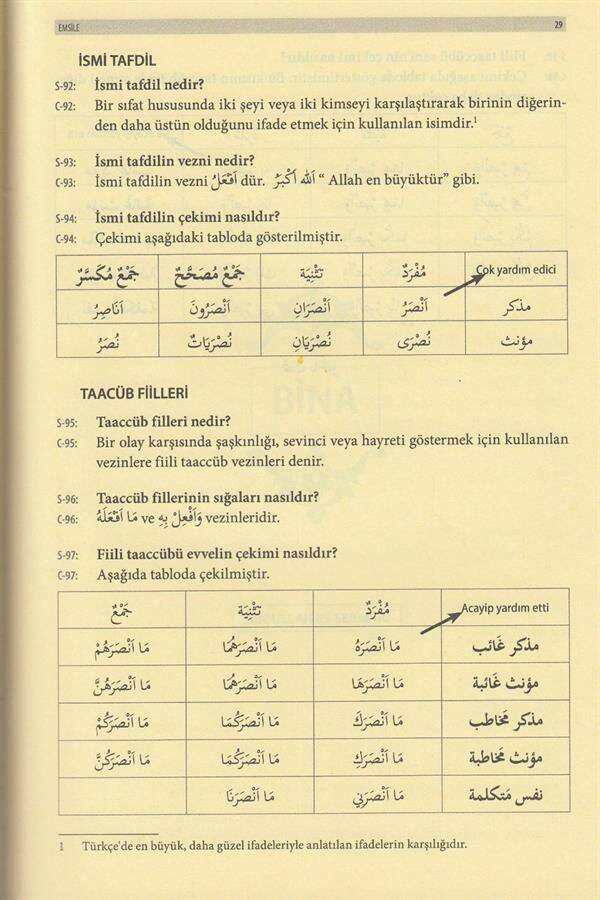 EMSİLE 29
İSMİ TAFDİL
S-92: İsmi tafdil nedir?
C-92: Bir sıfat hususunda iki şeyi veya iki kimseyi karşılaştırarak birinin diğerin-
den daha üstün olduğunu ifade etmek için kullanılan isimdir.1
S-93: İsmi tafdilin vezni nedir?
C-93: İsmi tafdilin vezni اَفْعَلُ dür. اَلله اَكْبَرُ “ Allah en büyüktür” gibi.
S-94: İsmi tafdilin çekimi nasıldır?
C-94: Çekimi aşağıdaki tabloda gösterilmiştir.
Çok yardım edici مُفْرَدٌ تَثْنِيَة جَمْعٌ مُصَحَّحٌ جَمْعٌ مُكَسَّرٌ
مذكر اَنْصَرُ اَنْصَرَانِ اَنْصَرُونَ اَنَاصِرُ
مؤنث نُصْرَى نُصْرَيَانِ نُصْرَيَاتٌ نُصَرُ
TAACÜB FİİLLERİ
S-95: Taaccüb filleri nedir?
C-95: Bir olay karşısında şaşkınlığı, sevinci veya hayreti göstermek için kullanılan
vezinlere fiili taaccüb vezinleri denir.
S-96: Taaccüb fillerinin sığaları nasıldır?
C-96: مَا اَفْعَلَهُ ve وَاَفْعِلْ بِهِ vezinleridir.
S-97: Fiili taaccübü evvelin çekimi nasıldır?
C-97: Aşağıda tabloda çekilmiştir.
Acayip yardım etti مُفْرَدٌ تَثْنِيَة جَمْعٌ
مذكر غَائب مَا اَنْصَرَهُ مَا اَنْصَرَهُمَا مَا اَنْصَرَهُمْ
مؤنث غَائبة مَا اَنْصَرَهَا مَا اَنْصَرَهُمَا مَا اَنْصَرَهُنَّ
مذكر مخَاطب مَا اَنْصَرَكَ مَا اَنْصَرَكُمَا مَا اَنْصَرَكُمْ
مؤنث مخَاطبة مَا اَنْصَرَكِ مَا اَنْصَرَكُمَا مَا اَنْصَرَكُنَّ
نفس متكلمة مَا اَنْصَرَنِي مَا اَنْصَرَنَا
1 Türkçe'de en büyük, daha güzel ifadeleriyle anlatılan ifadelerin karşılığıdır.